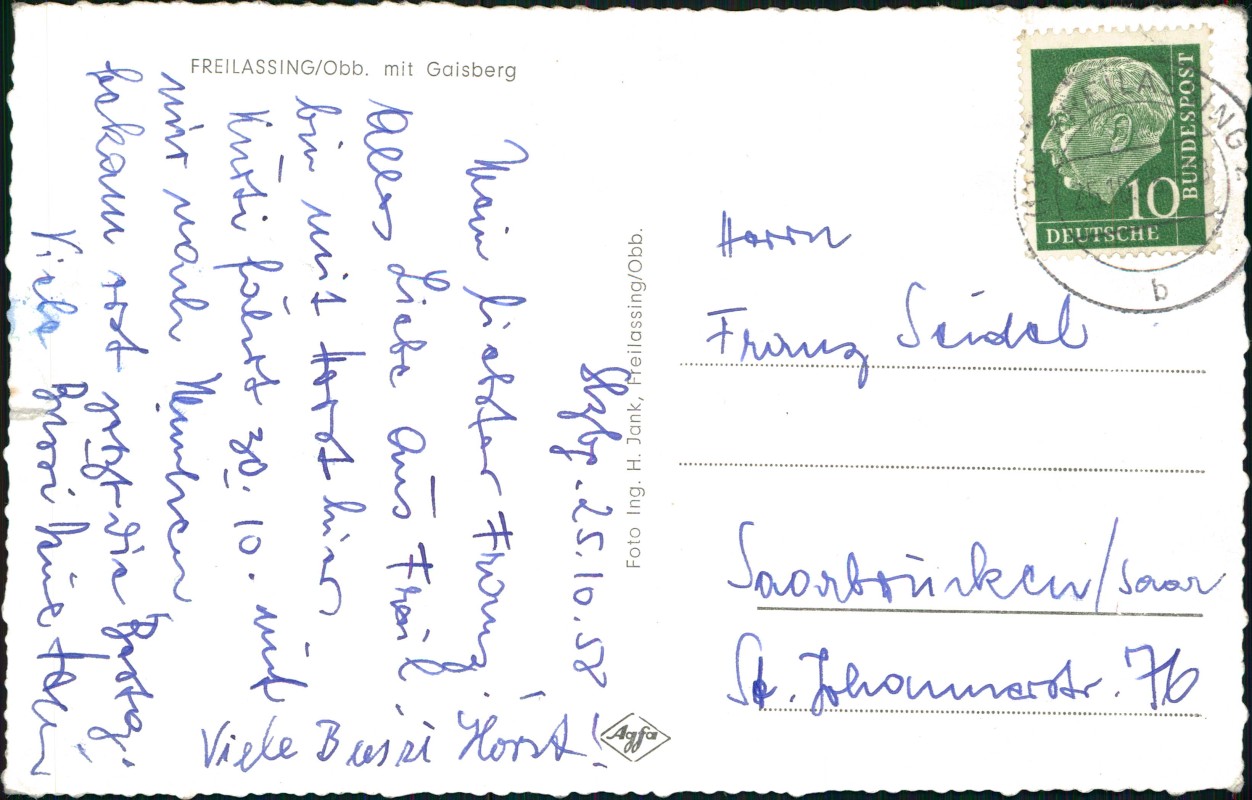 FREILASSING/Obb. mit Gaisberg
Slzbg. 25.10.58
Mein liebster Franz!
Alles Liebe aus Freil.
bin mit Horst hier
Kurti fährt 30. 10. mit
mir nach München
bekam erst jetzt die
Viele Bussi
Viele Bussi Horst!
Foto Ing. H. Jank, Freilassing/Obb.
Agfa
DEUTSCHE
BUNDESPOST
10
FREILASSING
b
Herrn
Franz Seidel
Saarbrücken/Saar
St. Johannerstr. 76